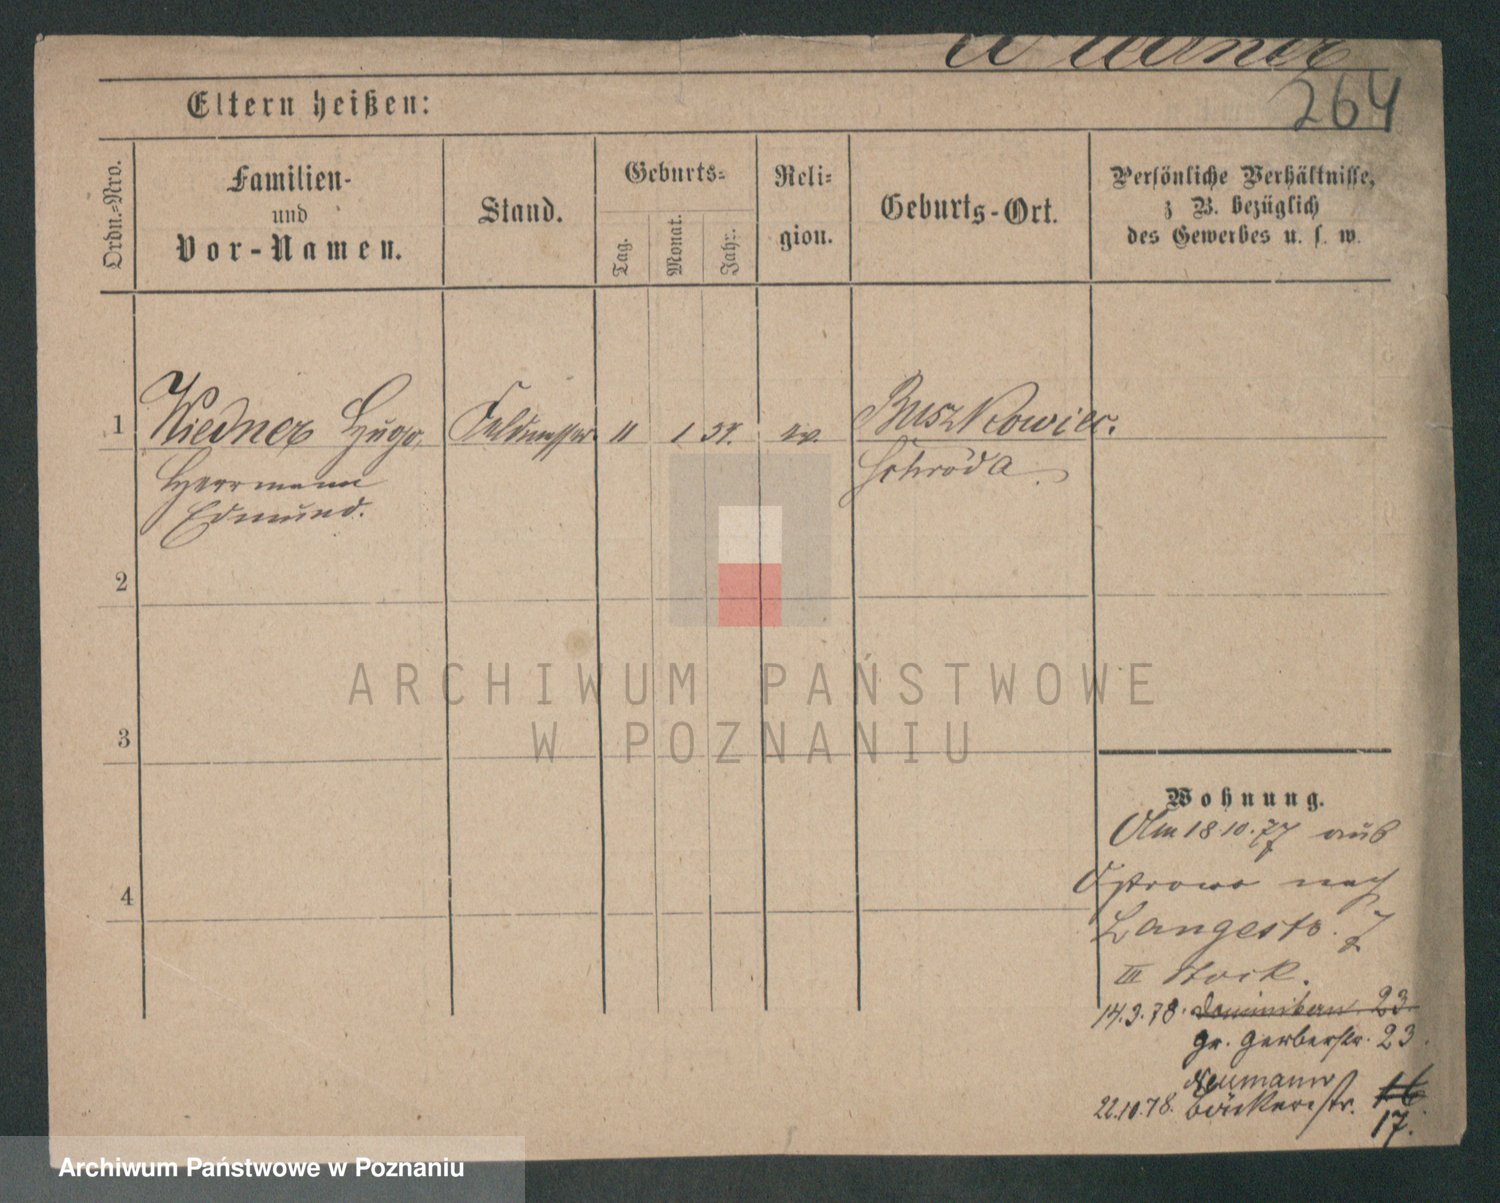 Wiedner
264
Eltern heißen:
Ordn.-Nro.
Familien-
und
Vor-Namen.
Stand.
Geburts-
Tag.
Monat.
Jahr.
Reli-
gion.
Geburts-Ort.
Persönliche Verhältnisse,
z B. bezüglich
des Gewerbes u. s. w.
1 Wiedner Hugo, Feldmesser 11 1 ev. Buszkowiec.
Herrmann Schroda
Edmund.
2
3
4
ARCHIWUM PAŃSTWOWE
W POZNANIU
Wohnung.
Am 18 10.77 aus
Ostrowo nach
Langestr. 7
III Stock.
14.3.78. Dominikan 23.
gr. Gerberstr. 23.
Neumann
22.10.78. Bäckerstr. 16
17.
Archiwum Państwowe w Poznaniu